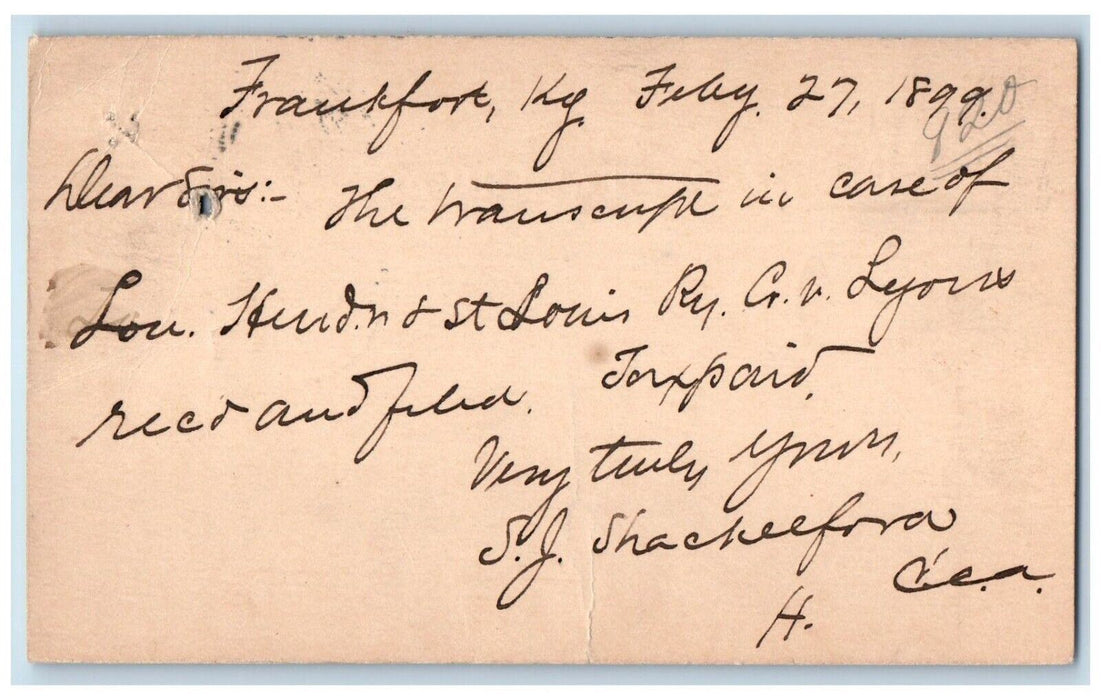 Frankfort, Ky. Feby. 27, 1899.
920
Dear Sirs:- The transcript in case of
Lou. Hend'n & St Louis Ry. Co. v. Lyons
recd and filed. Tax paid.
Very truly yours,
S. J. Shackelford
C.C.A.
H.